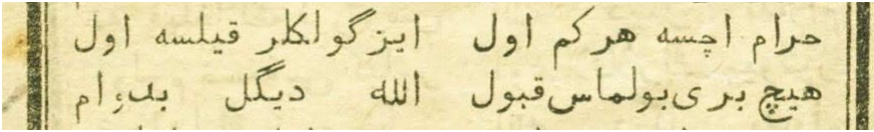 حرام اچسه هر کم اول ایزگولکلر قیلسه اول
هیچ بری بولماس قبول الله دیگل بدوام